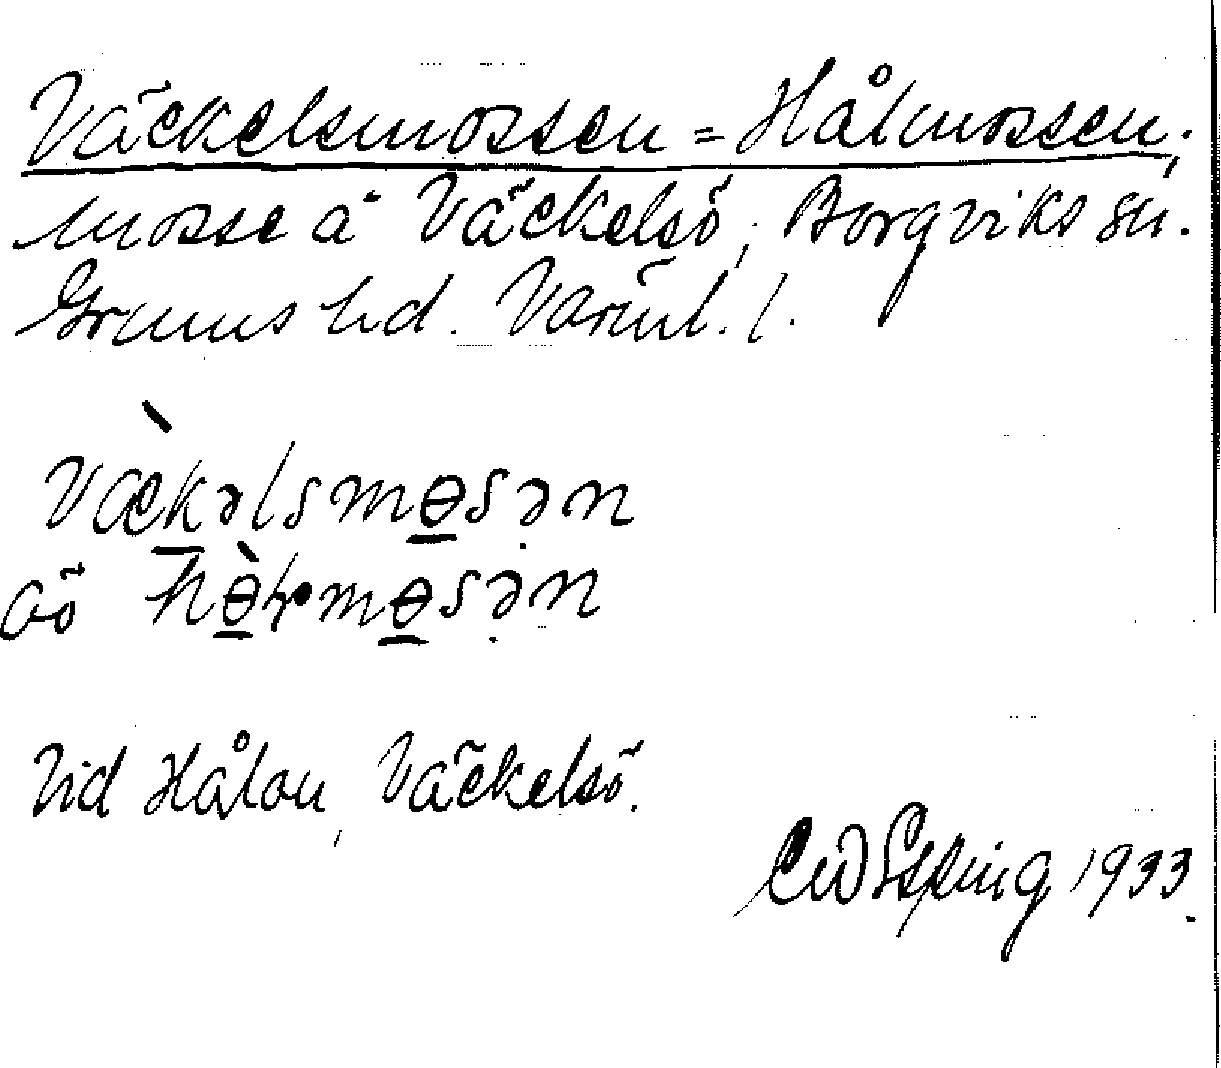 Väckelsmossen = Hålmossen,.
mosse å Väckelsö, Borgviks sn.
Grums hd. Värml. l.
væ̀kəlsmɵsən
oö hɵ̀ɽmɵsən
Vid Hålan, Väckelsö.
1933.